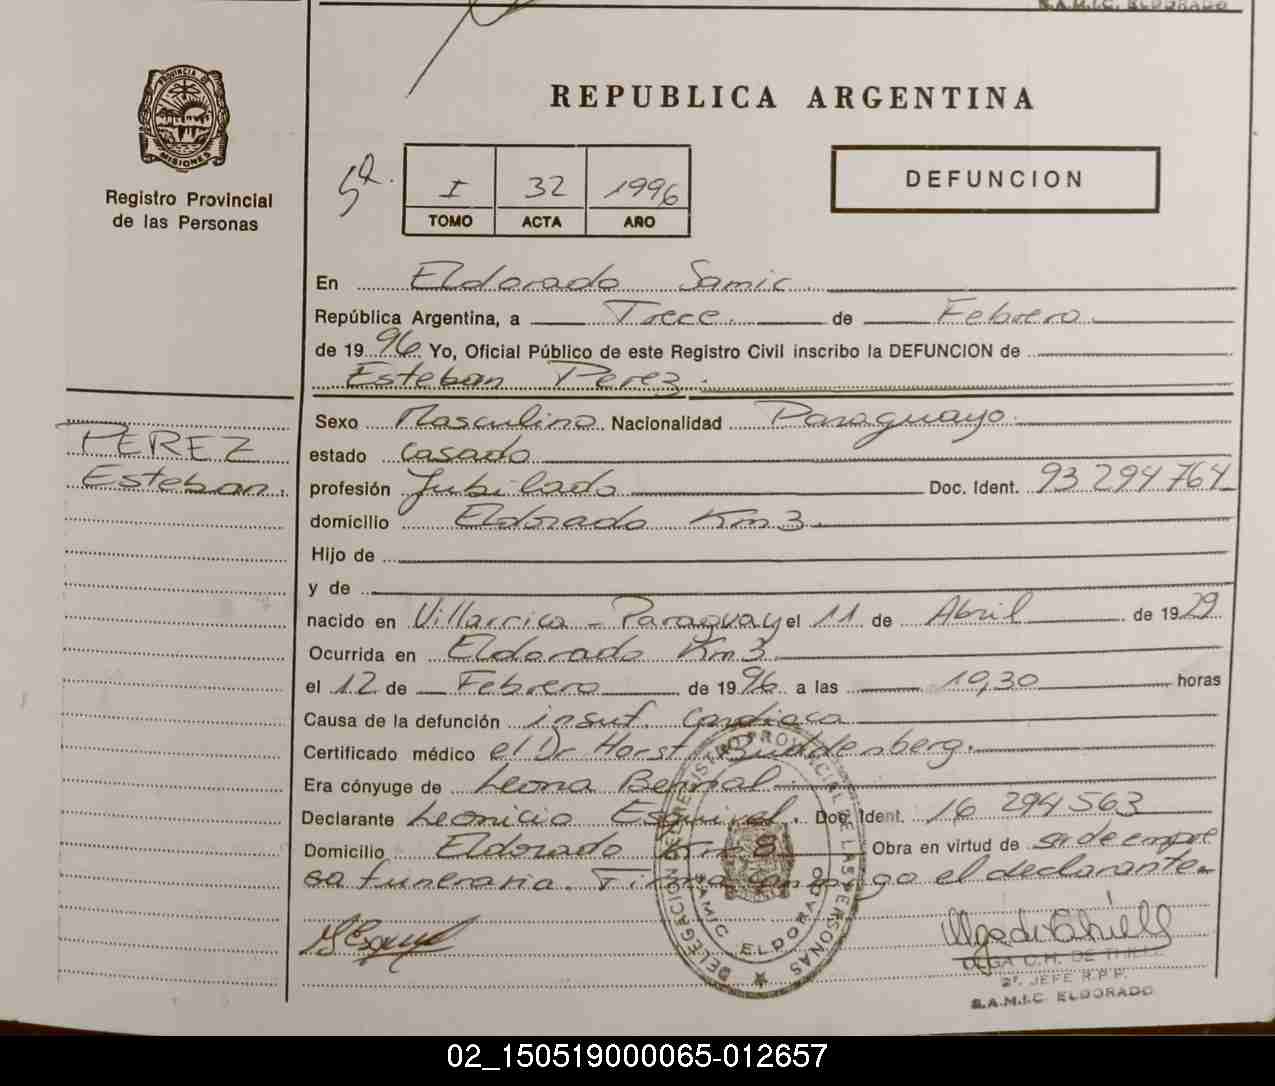 S.A.M.I.C. ELDORADO
REPUBLICA ARGENTINA
PROVINCIA DE
MISIONES
Registro Provincial
de las Personas
5ª.
I 32 1996
TOMO ACTA AÑO
DEFUNCION
En Eldorado Samic.
República Argentina, a Trece. de Febrero.
de 1996 Yo, Oficial Público de este Registro Civil inscribo la DEFUNCION de
Esteban Perez.
PEREZ
Esteban.
Sexo Masculino. Nacionalidad Paraguayo.
estado casado
profesión Jubilado Doc. Ident. 93 294 764
domicilio Eldorado Km 3.
Hijo de
y de
nacido en Villarrica - Paraguay el 11 de Abril de 1929
Ocurrida en Eldorado Km 3
el 12 de Febrero de 1996 a las 10,30 horas
Causa de la defunción insuf. Cardiaca
Certificado médico el Dr Horst Buddenberg.
Era cónyuge de Leona Bernal.
Declarante Leonicio Esquivel. Doc. Ident. 16 294 563
Domicilio Eldorado Km 8 Obra en virtud de ser de empre
sa funeraria. Firma conmigo el declarante.
DELEGACION DE REGISTRO PROVINCIAL DE LAS PERSONAS
SAMIC ELDORADO
OLGA C.H. DE THIELE
2º. JEFE R.P.P.
S.A.M.I.C ELDORADO
02_150519000065-012657